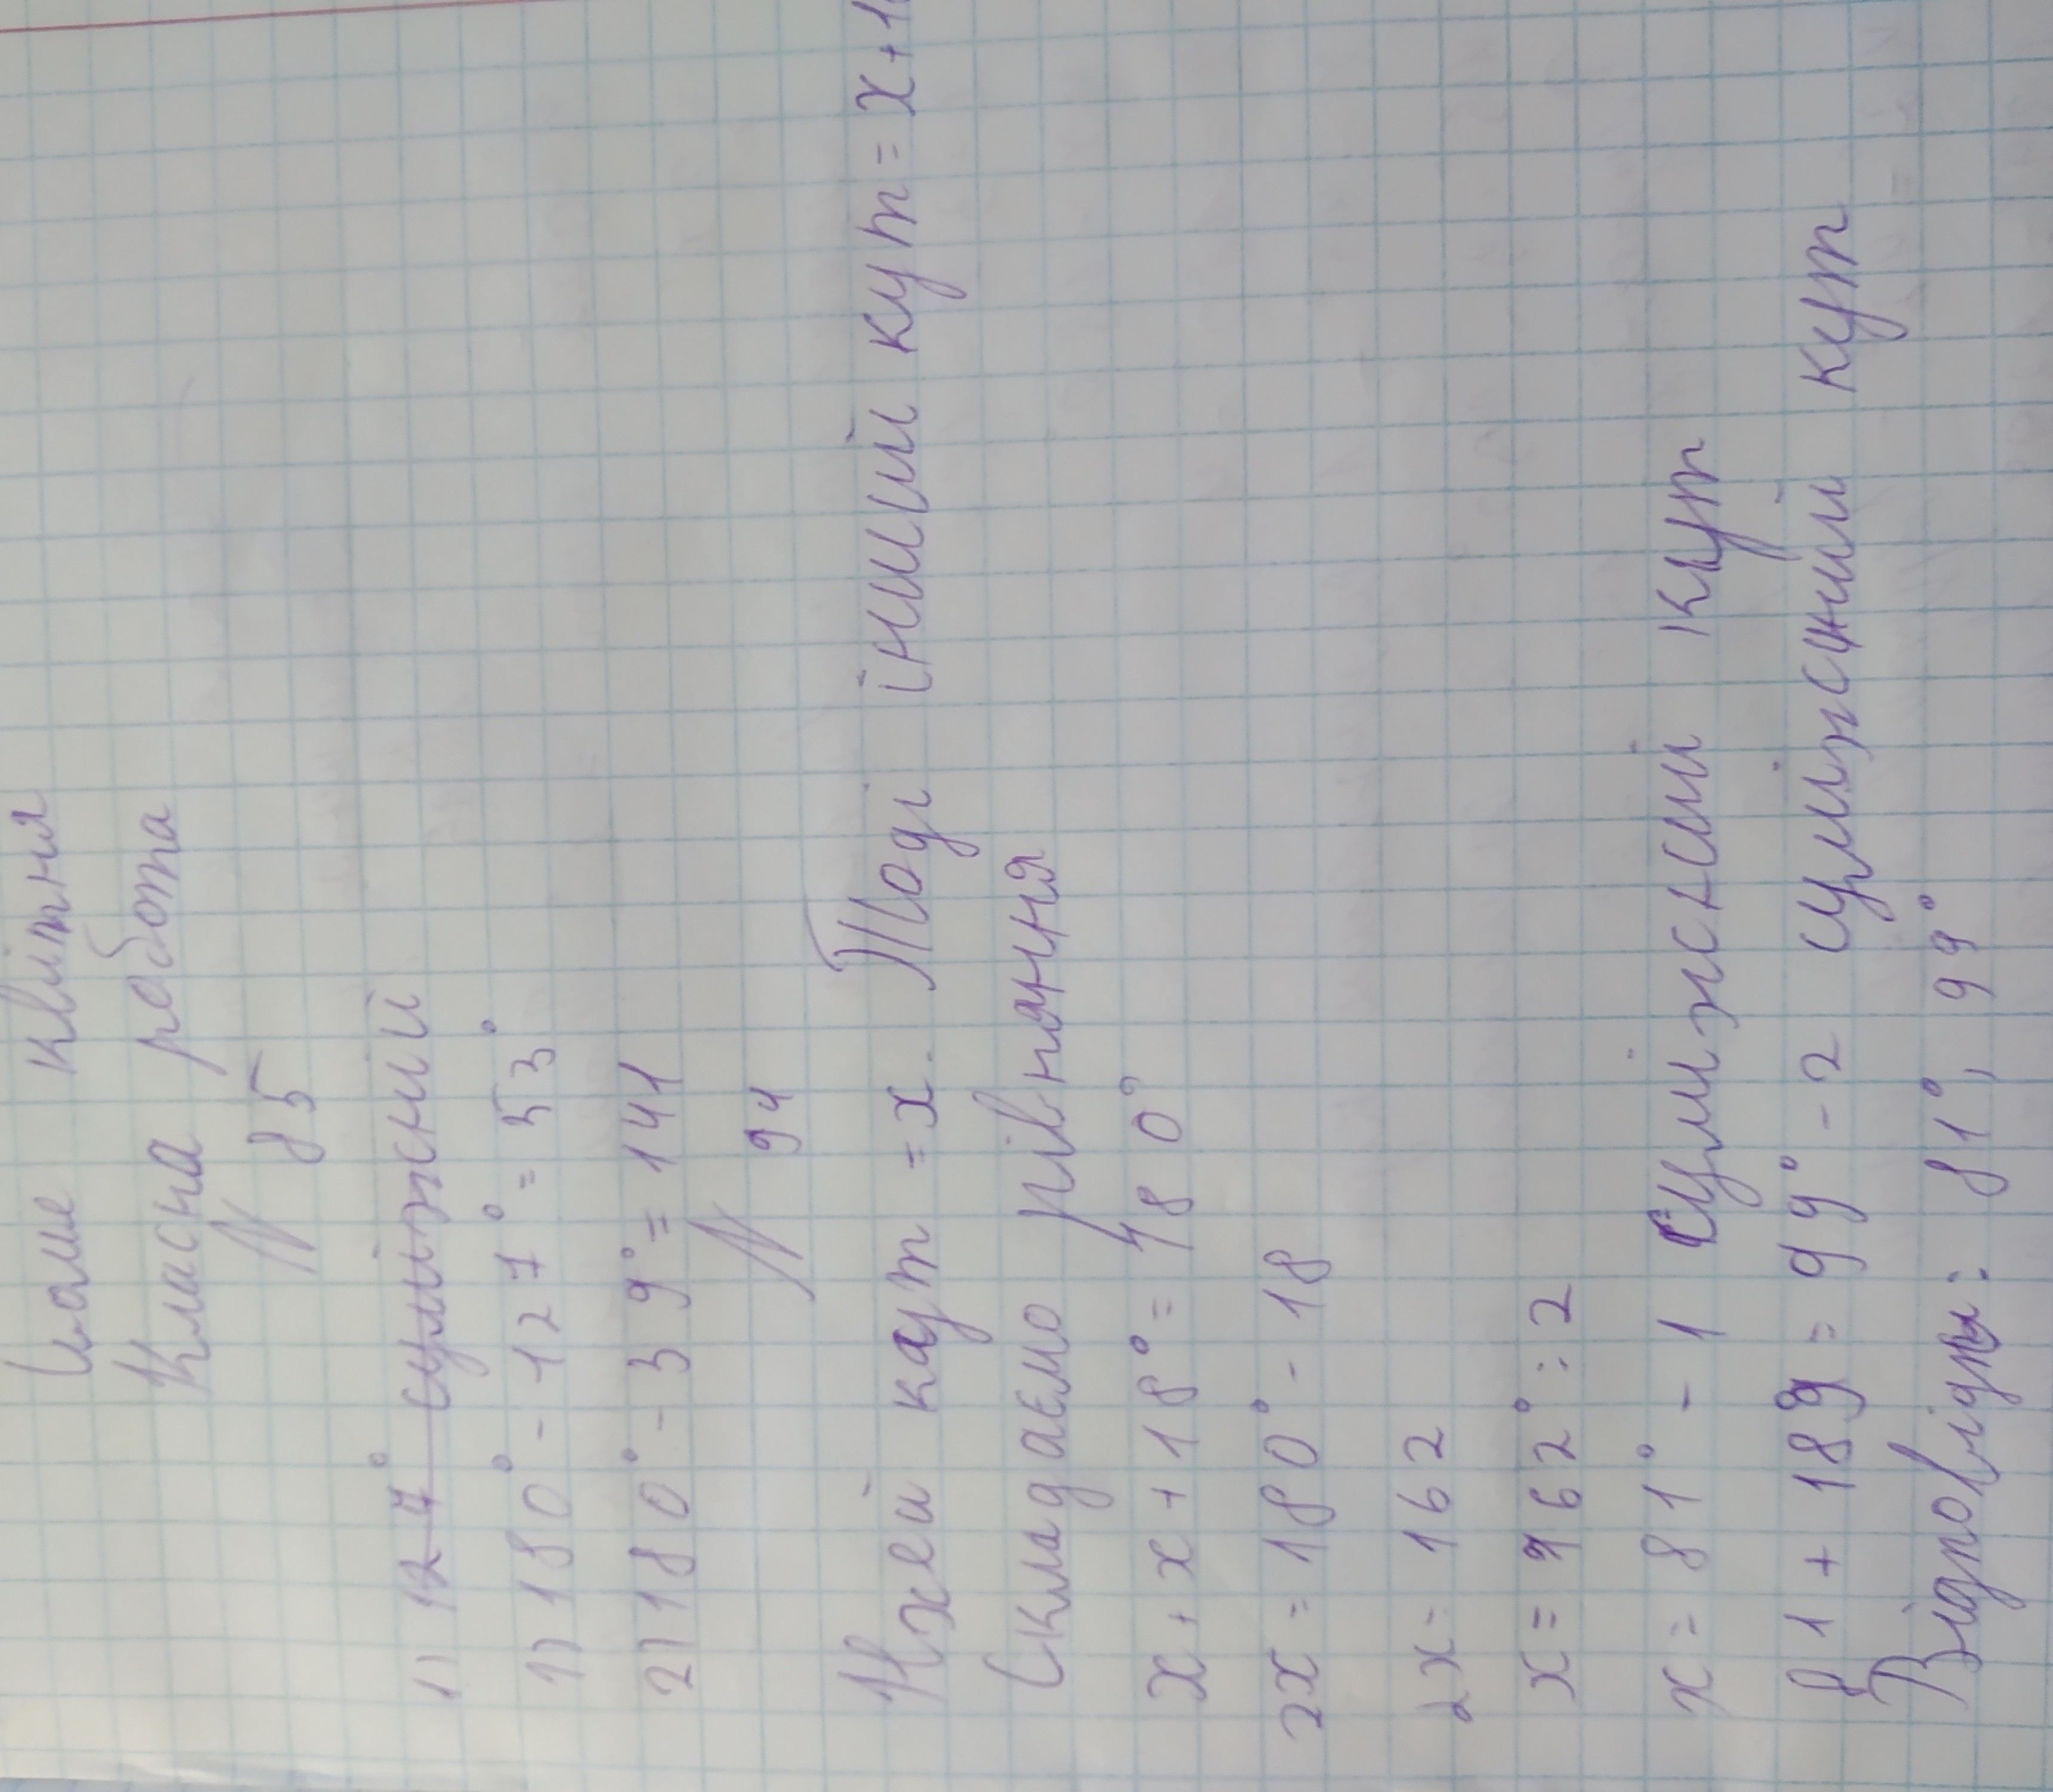 Сьоме квітня
Класна робота
№ 85
1) 127° суміжний
1) 180° - 127° = 53°
2) 180° - 39° = 141
№ 94
Нехй кут = x. Тоді інший кут = x+1
Складаємо рівняння
x + x + 18° = 180°
2x = 180° - 18
2x = 162
x = 162° : 2
x = 81° - 1 суміжний кут
81 + 18 = 99° - 2 суміжний кут
Відповідь: 81°, 99°